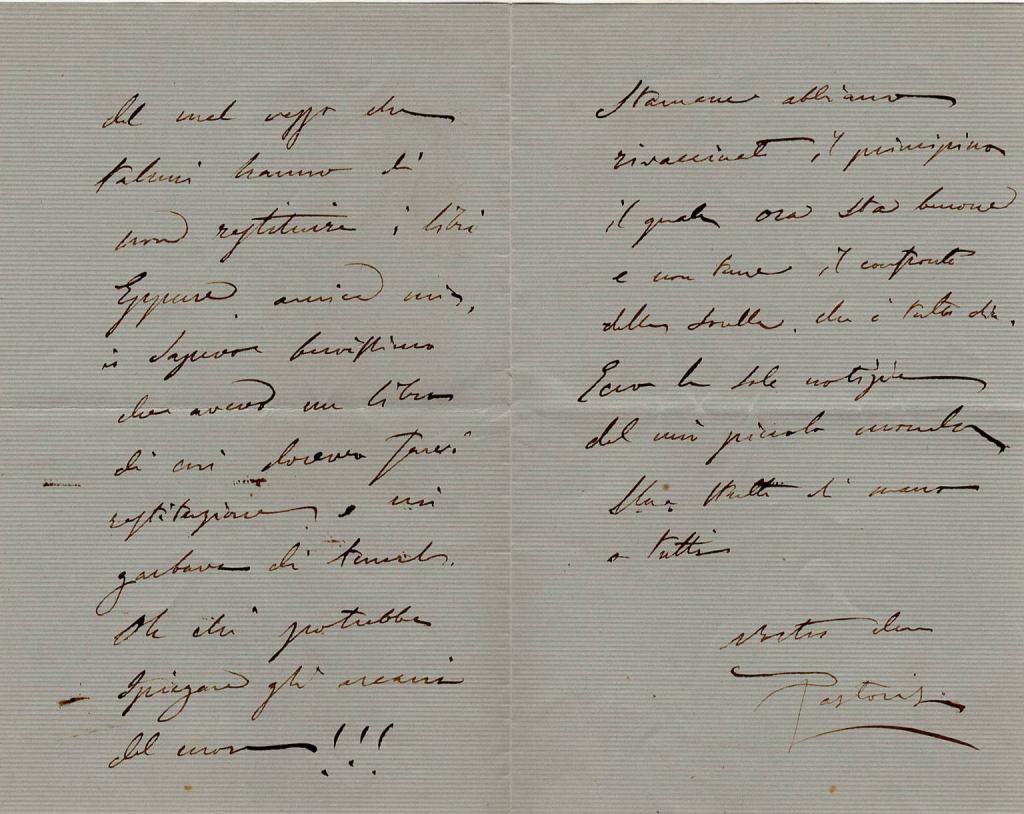 del mal vezzo che
taluni hanno di
non restituire i libri
Eppure amico mio,
io sapevo benissimo
che avevo un libro
di cui dovevo farvi
restituzione, mi
garbava di tenerlo.
Oh chi potrebbe
spiegare gli arcani
del cuore!!!
Stamane abbiamo
rivaccinato il principino
il quale ora sta benone
e non teme il confronto
della sorella, che è tutto dire.
Ecco le sole notizie
del mio piccolo mondo
Una stretta di mano
a tutti
vostro
Pastoris